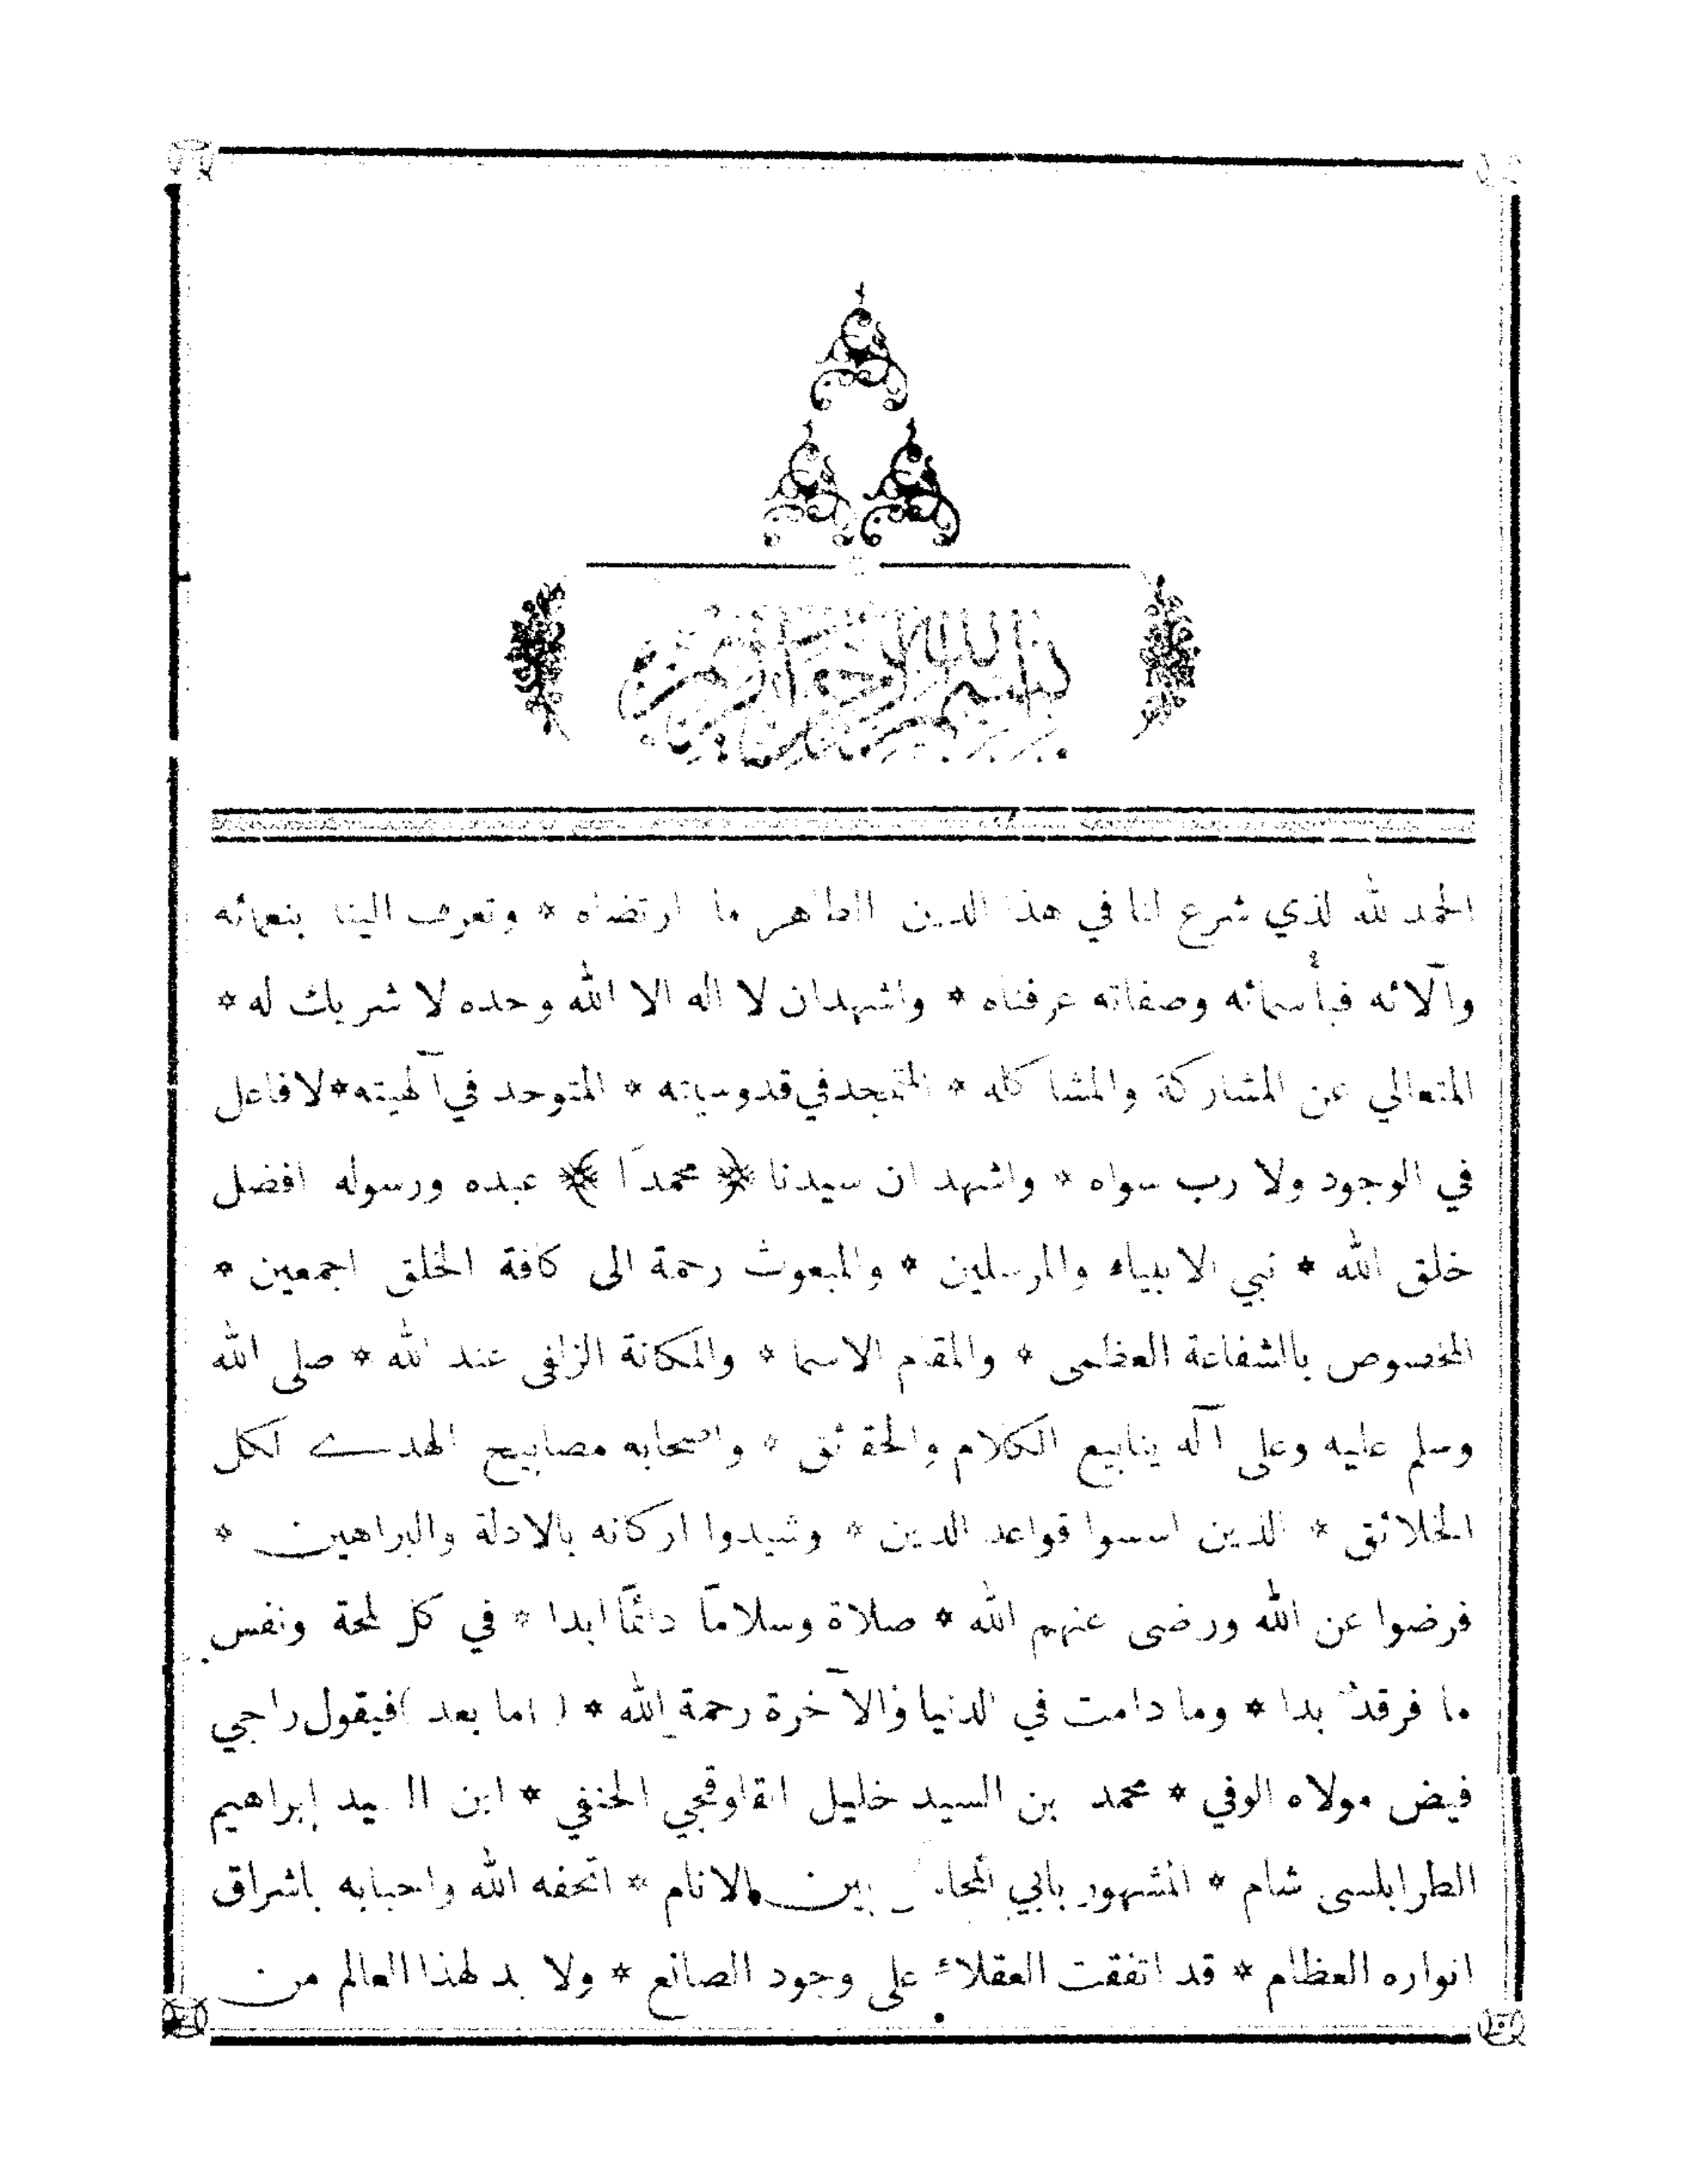 بسم الله الرحمن الرحيم
الحمد لله لذي شرع لنا في هذا الدين الطاهر ما ارتضاه * وتعرف الينا بنعمائه
وآلائه فبأسمائه وصفاته عرفناه * واشهدان لا اله الا الله وحده لا شريك له *
المتعالي عن المشاركة والمشاكله * المتمجد في قدوسيته * المتوحد في آلهيته * لا فاعل
في الوجود ولا رب سواه * واشهد ان سيدنا ﴿ محمدًا ﴾ عبده ورسوله افضل
خلق الله * نبي الانبياء والمرسلين * والمبعوث رحمة الى كافة الخلق اجمعين *
المخصوص بالشفاعة العظمى * والمقام الاسما * والمكانة الزلفى عند الله * صلى الله
وسلم عليه وعلى آله ينابيع الكلام والحقائق * واصحابه مصابيح الهدى لكل
الخلائق * الذين اسسوا قواعد الدين * وشيدوا اركانه بالادلة والبراهين *
فرضوا عن الله ورضى عنهم الله * صلاة وسلامًا دائمًا ابدا * في كل لمحة ونفس
ما فرقدٌ بدا * وما دامت في الدنيا والآخرة رحمة الله * ( اما بعد ) فيقول راجي
فيض مولاه الوفي * محمد بن السيد خليل القاوقجي الحنفي * ابن السيد إبراهيم
الطرابلسى شام * المشهور بابي المحاسن بين الانام * اتحفه الله واحبابه باشراق
انواره العظام * قد اتفقت العقلاء على وجود الصانع * ولا بد لهذا العالم من